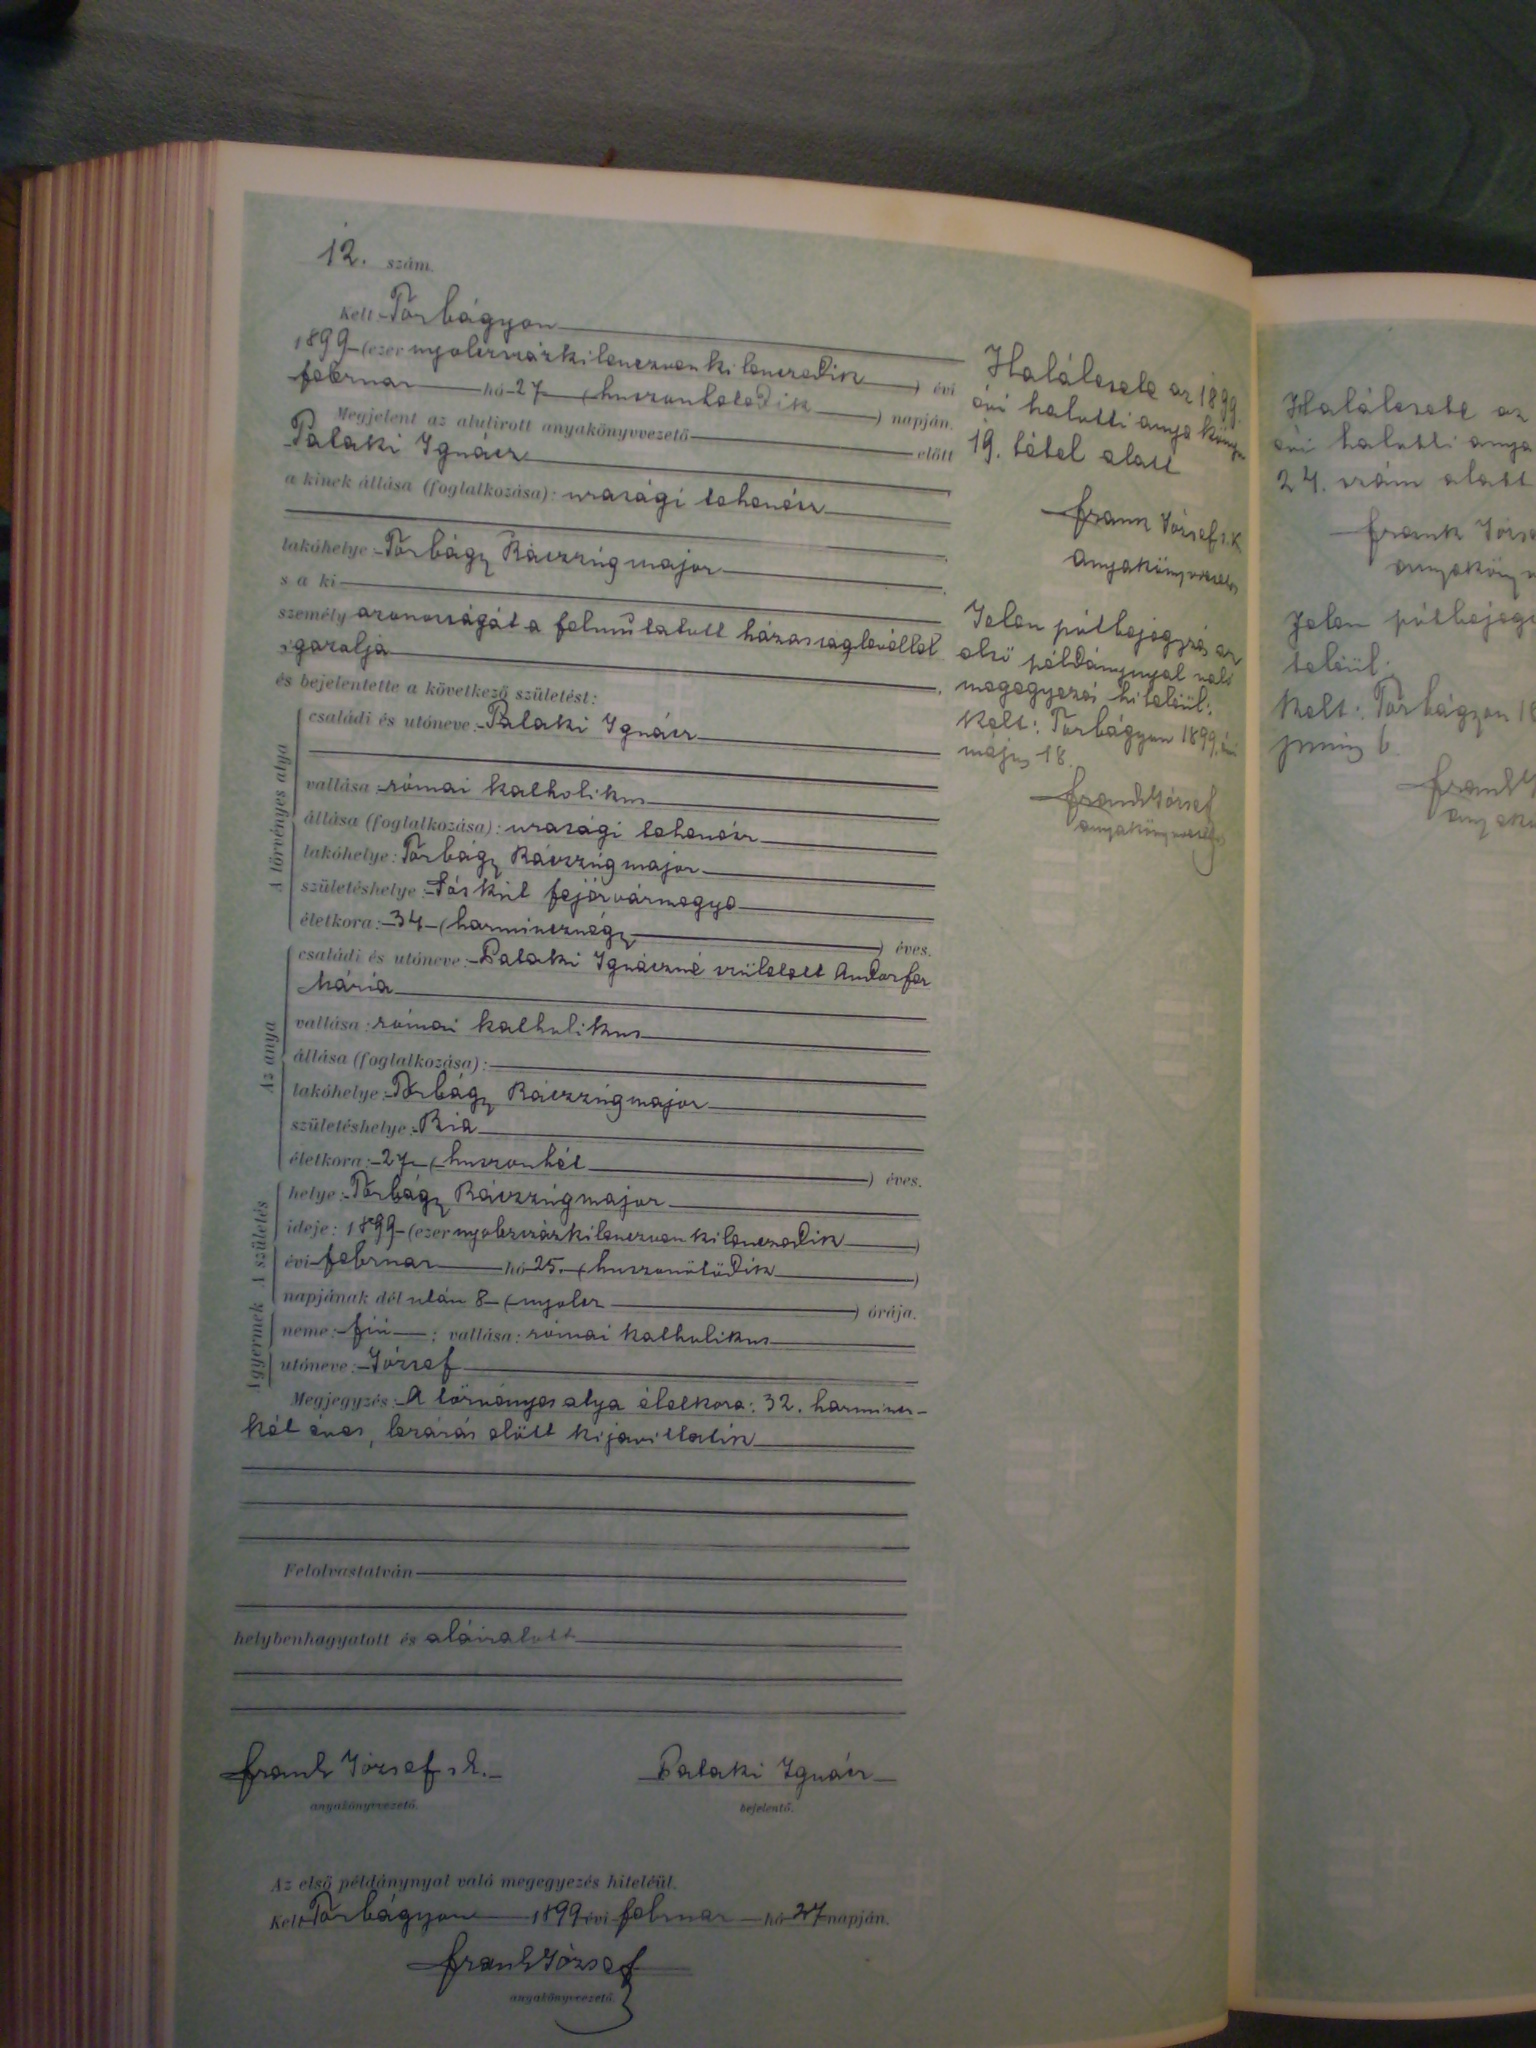 12. szám.
Kelt Törbágyon
1899 (ezer nyolczszázkilenczvenkilenczedik) évi
februar hó 27 (huszonhetedik) napján.
Megjelent az alulirott anyakönyvvezető előtt
Palaki Ignácz
a kinek állása (foglalkozása): urasági tehenész
lakóhelye: Törbágy Ráczzúgmajor
s a ki
személy azonosságát a felmutatott házasságlevéllel
igazolja
és bejelentette a következő születést:
A törvényes atya
családi és utóneve: Palaki Ignácz
vallása: római katholikus
állása (foglalkozása): urasági tehenész
lakóhelye: Törbágy Ráczzúgmajor
születéshelye: Sóskút fejérvármegye
életkora: 34 (harmincznégy) éves.
Az anya
családi és utóneve: Palaki Ignáczné született Andorfer
Mária
vallása: római katholikus
állása (foglalkozása):
lakóhelye: Törbágy Ráczzúgmajor
születéshelye: Bia
életkora: 27 (huszonhét) éves.
A születés
helye: Törbágy Ráczzúgmajor
ideje: 1899 (ezer nyolczszázkilenczvenkilenczedik)
évi februar hó 25. (huszonötödik)
napjának dél után 8 (nyolcz) órája.
A gyermek
neme: fiú; vallása: római katholikus
utóneve: József
Megjegyzés: A törvényes atya életkora: 32. harmincz-
két éves, lezárás előtt kijavittatik
Felolvastatván
helybenhagyatott és aláiratott
Frank József s.k. Palaki Ignácz
anyakönyvvezető. bejelentő.
Az első példánynyal való megegyezés hiteléül.
Kelt Törbágyon 1899 évi februar hó 27 napján.
Frank József
anyakönyvvezető.
Halálesete az 1899
évi halotti anyaköny
19. tétel alatt
Frank József s.k.
anyakönyvvezető
Jelen pótbejegyzés az
első példánynyal való
megegyezés hiteléül:
Kelt: Törbágyon 1899. évi
május 18.
Frank József
anyakönyvvezető
Halálesete az
évi halotti anya
24. szám alatt
Frank Józse
anyaköny
Jelen pótbejegy
teléül:
Kelt: Törbágyon 18
junius 6.
Frank J
anyakö